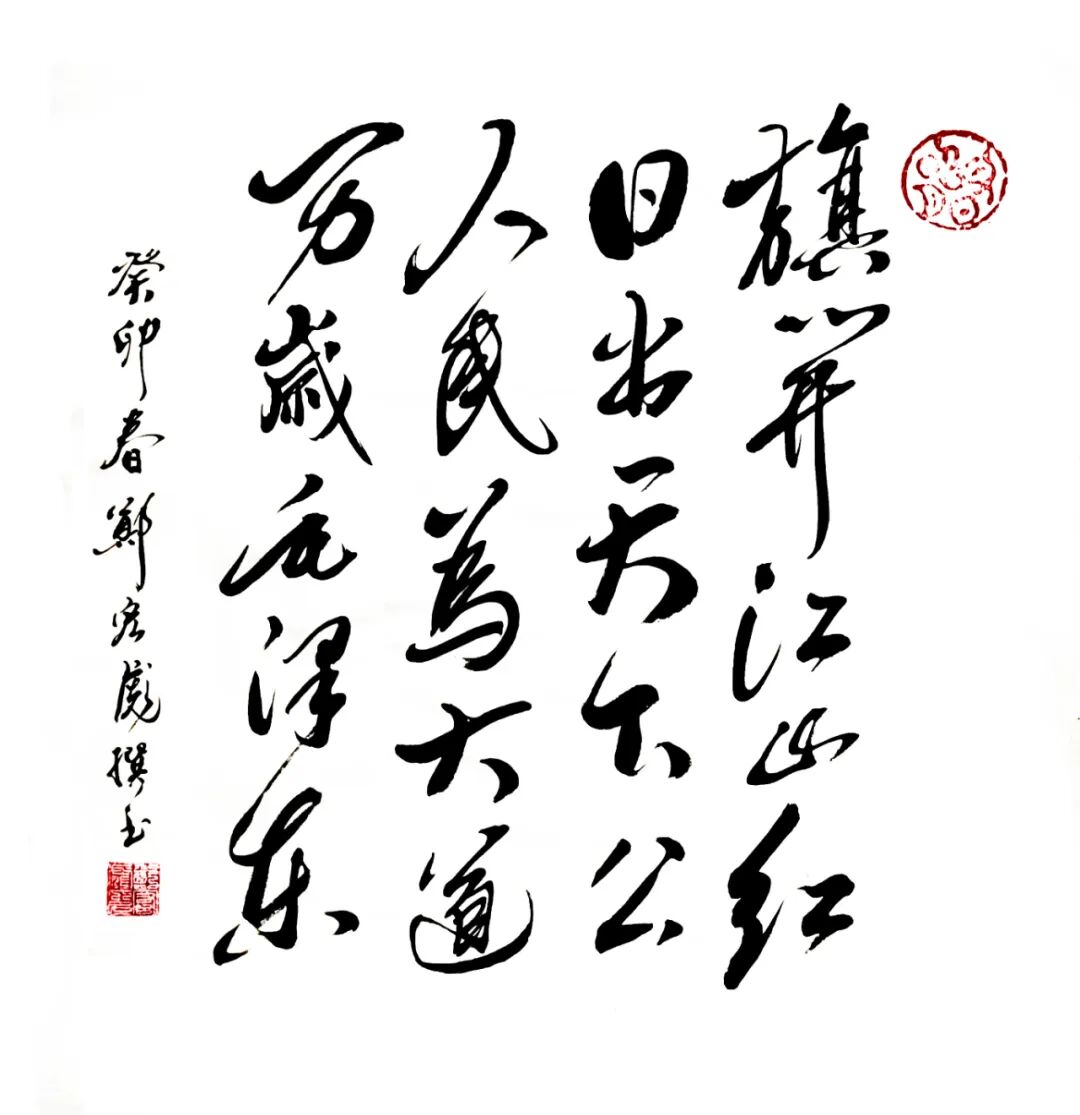 旗開江山紅
日出天下公
人民為大道
万歲毛澤東
癸卯春鄭宏彪撰書